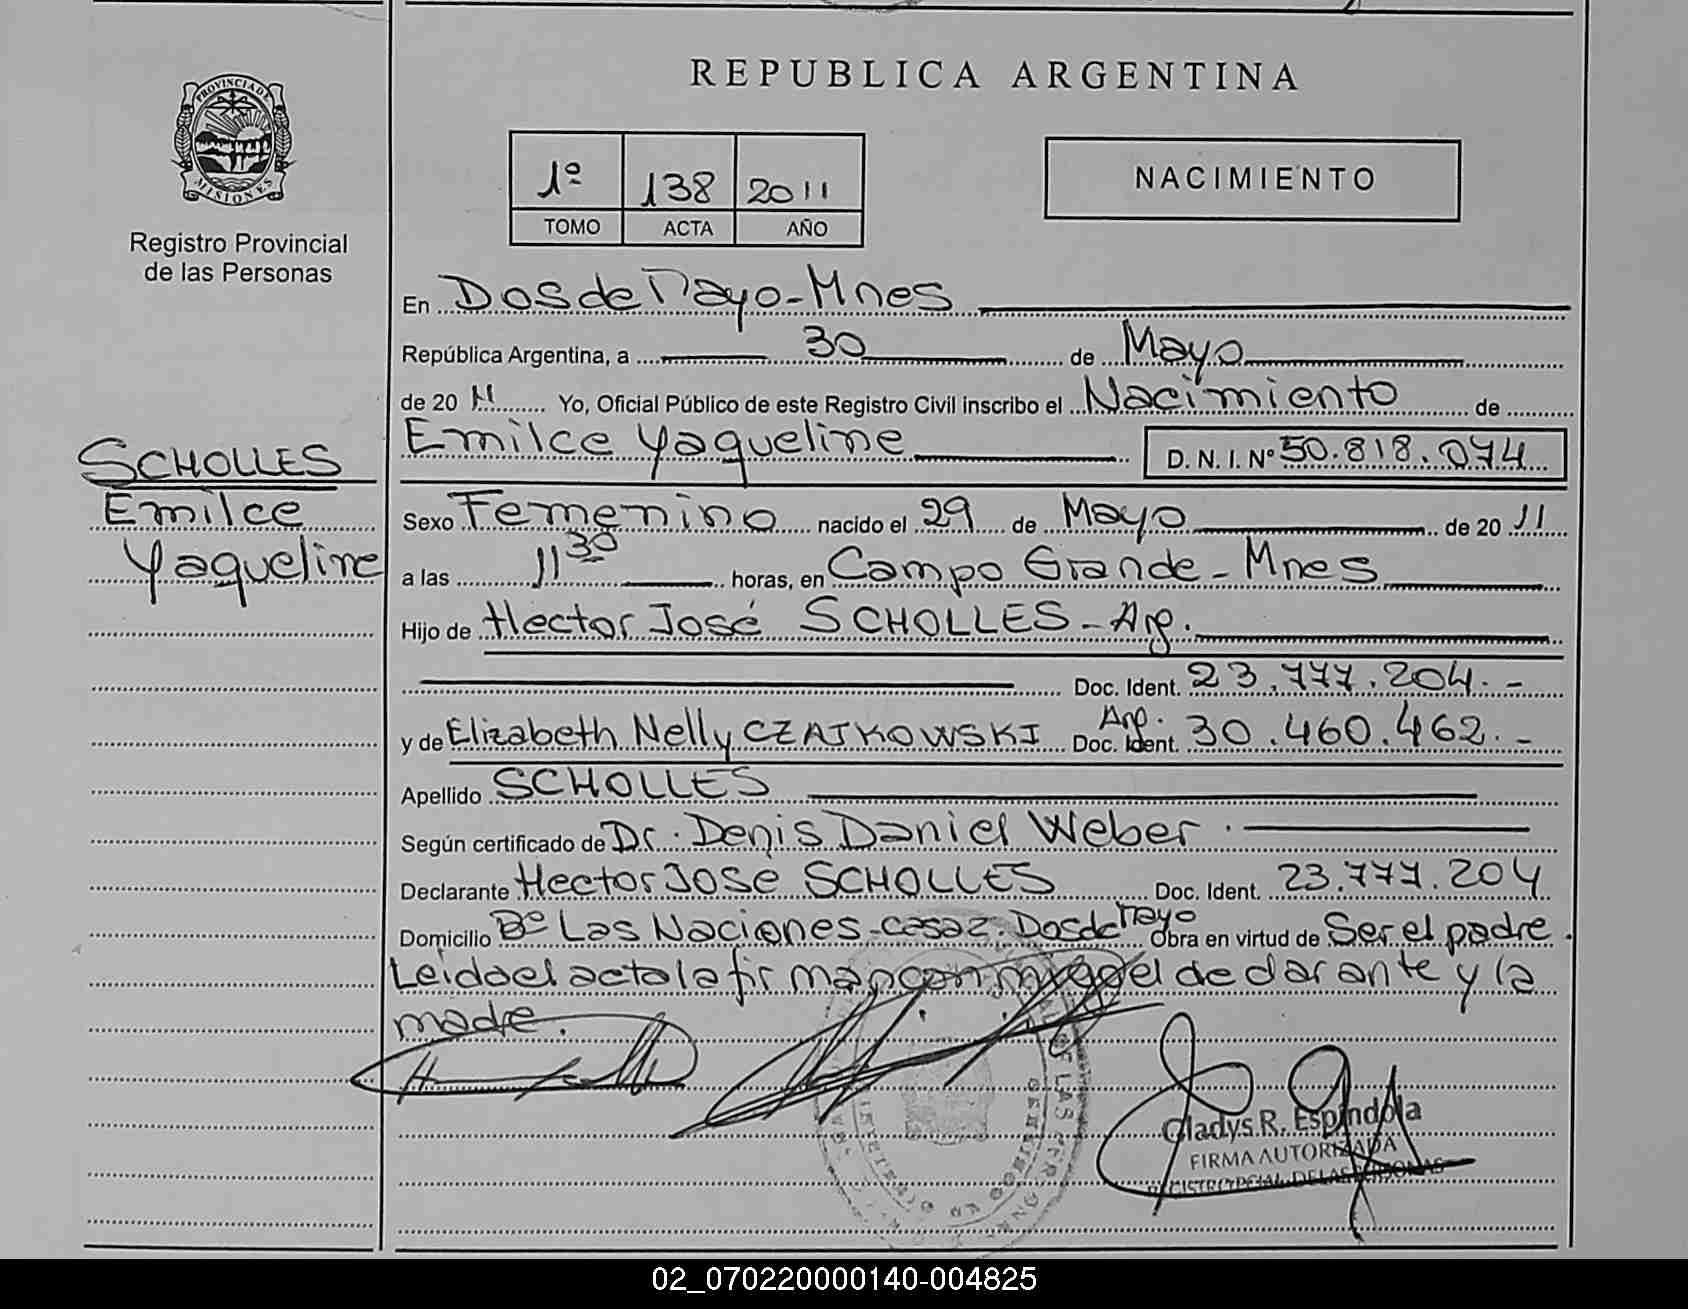 REPUBLICA ARGENTINA
PROVINCIA DE
MISIONES
Registro Provincial
de las Personas
1º 138 2011
TOMO ACTA AÑO
NACIMIENTO
En Dos de Mayo - Mnes
República Argentina, a 30 de Mayo
de 20 11 Yo, Oficial Público de este Registro Civil inscribo el Nacimiento de
SCHOLLES
Emilce
Yaqueline
Emilce Yaqueline D. N. I. Nº 50.818.074
Sexo Femenino nacido el 29 de Mayo de 20 11
a las 11 30 horas, en Campo Grande - Mnes
Hijo de Hector José SCHOLLES - Arg.
Doc. Ident. 23.777.204.-
y de Elizabeth Nelly CZAJKOWSKI Arg. Doc. Ident. 30.460.462.-
Apellido SCHOLLES
Según certificado de Dr. Denis Daniel Weber.
Declarante Hector José SCHOLLES Doc. Ident. 23.777.204
Domicilio Bº Las Naciones - casa 2 Dos de Mayo Obra en virtud de Ser el padre.
Leido el acta la firman conmigo el declarante y la
madre.
Gladys R. Espíndola
FIRMA AUTORIZADA
REGISTRO PCIAL. DE LAS PERSONAS
02_070220000140-004825